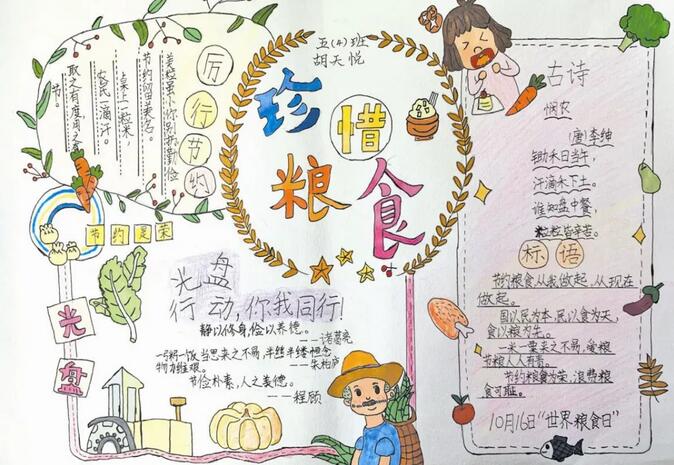 五(4)班
胡天悦
珍惜
粮食
厉行节约
粒虽小你别扔勤俭
节约留美名。
桌上一粒米,
农民一滴汗。
取之有度,用之有
节。
节约光荣
光盘
光盘
行动,你我同行!
静以修身,俭以养德。
——诸葛亮
一粥一饭当思来之不易,半丝半缕恒念
物力维艰。
——朱柏庐
节俭朴素,人之美德。
古诗
悯农
(唐)李绅
锄禾日当午,
汗滴禾下土。
谁知盘中餐,
粒粒皆辛苦。
标语
节约粮食从我做起,从现在
做起。
国以民为本,民以食为天,
食以粮为先。
一米一粟来之不易,爱粮
节粮人人有责。
节约粮食为荣,浪费粮
食可耻。
10月16日“世界粮食日”